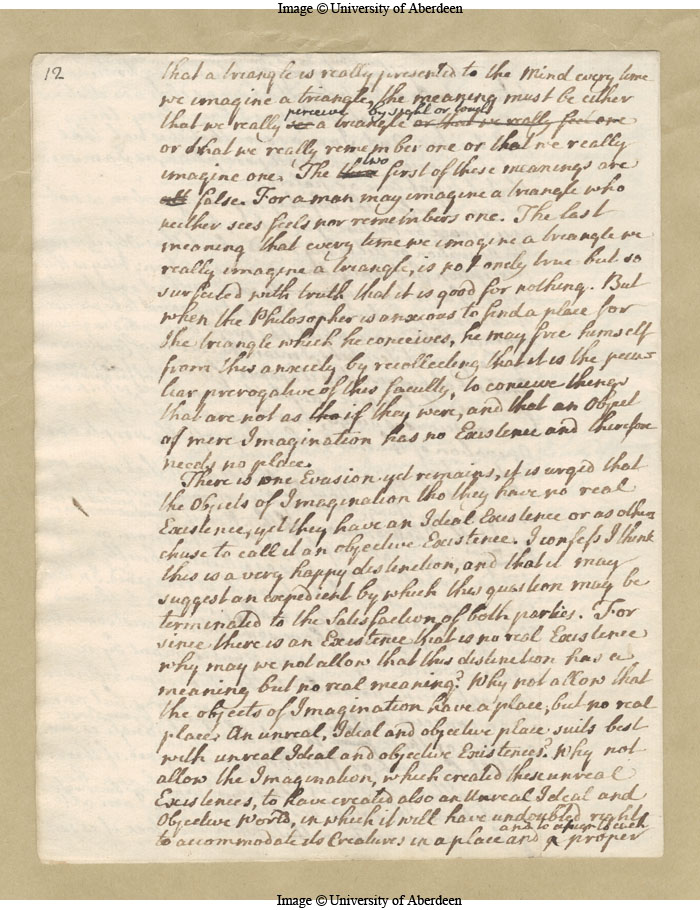 Image © University of Aberdeen
12
that a triangle is really presented to the mind every time
we imagine a triangle, the meaning must be either
perceive by sight or touch
that we really see a triangle or that we really feel one
or that we really remember one or that we really
two
imagine one. The three first of these meanings are
all false. For a man may imagine a triangle who
neither sees feels nor remembers one. The last
meaning that every time we imagine a triangle we
really imagine a triangle, is not onely true but so
surfeited with truth that it is good for nothing. But
when the Philosopher is anxious to find a place for
the triangle which he conceives, he may free himself
from this anxiety by recollecting that it is the pecu-
liar prerogative of this faculty, to conceive things
that are not as tho if they were, and that an Object
of mere Imagination has no Existence and therefore
needs no place.
There is one Evasion yet remains, it is urged that
the Objects of Imagination tho they have no real
Existence, yet they have an Ideal Existence or as others
chuse to call it an objective Existence. I confess I think
this is a very happy distinction, and that it may
suggest an expedient by which this question may be
terminated to the Satisfaction of both parties. For
since there is an Existence that is no real Existence
why may we not allow that this distinction has a
meaning but no real meaning? Why not allow that
the objects of Imagination have a place, but no real
place. An unreal, Ideal and objective place suits best
with unreal Ideal and objective Existences? Why not
allow the Imagination, which created these unreal
Existences, to have created also an Unreal Ideal and
Objective World, in which it will have undoubted right
and to each
to accommodate its Creatures in a place and proper
Image © University of Aberdeen